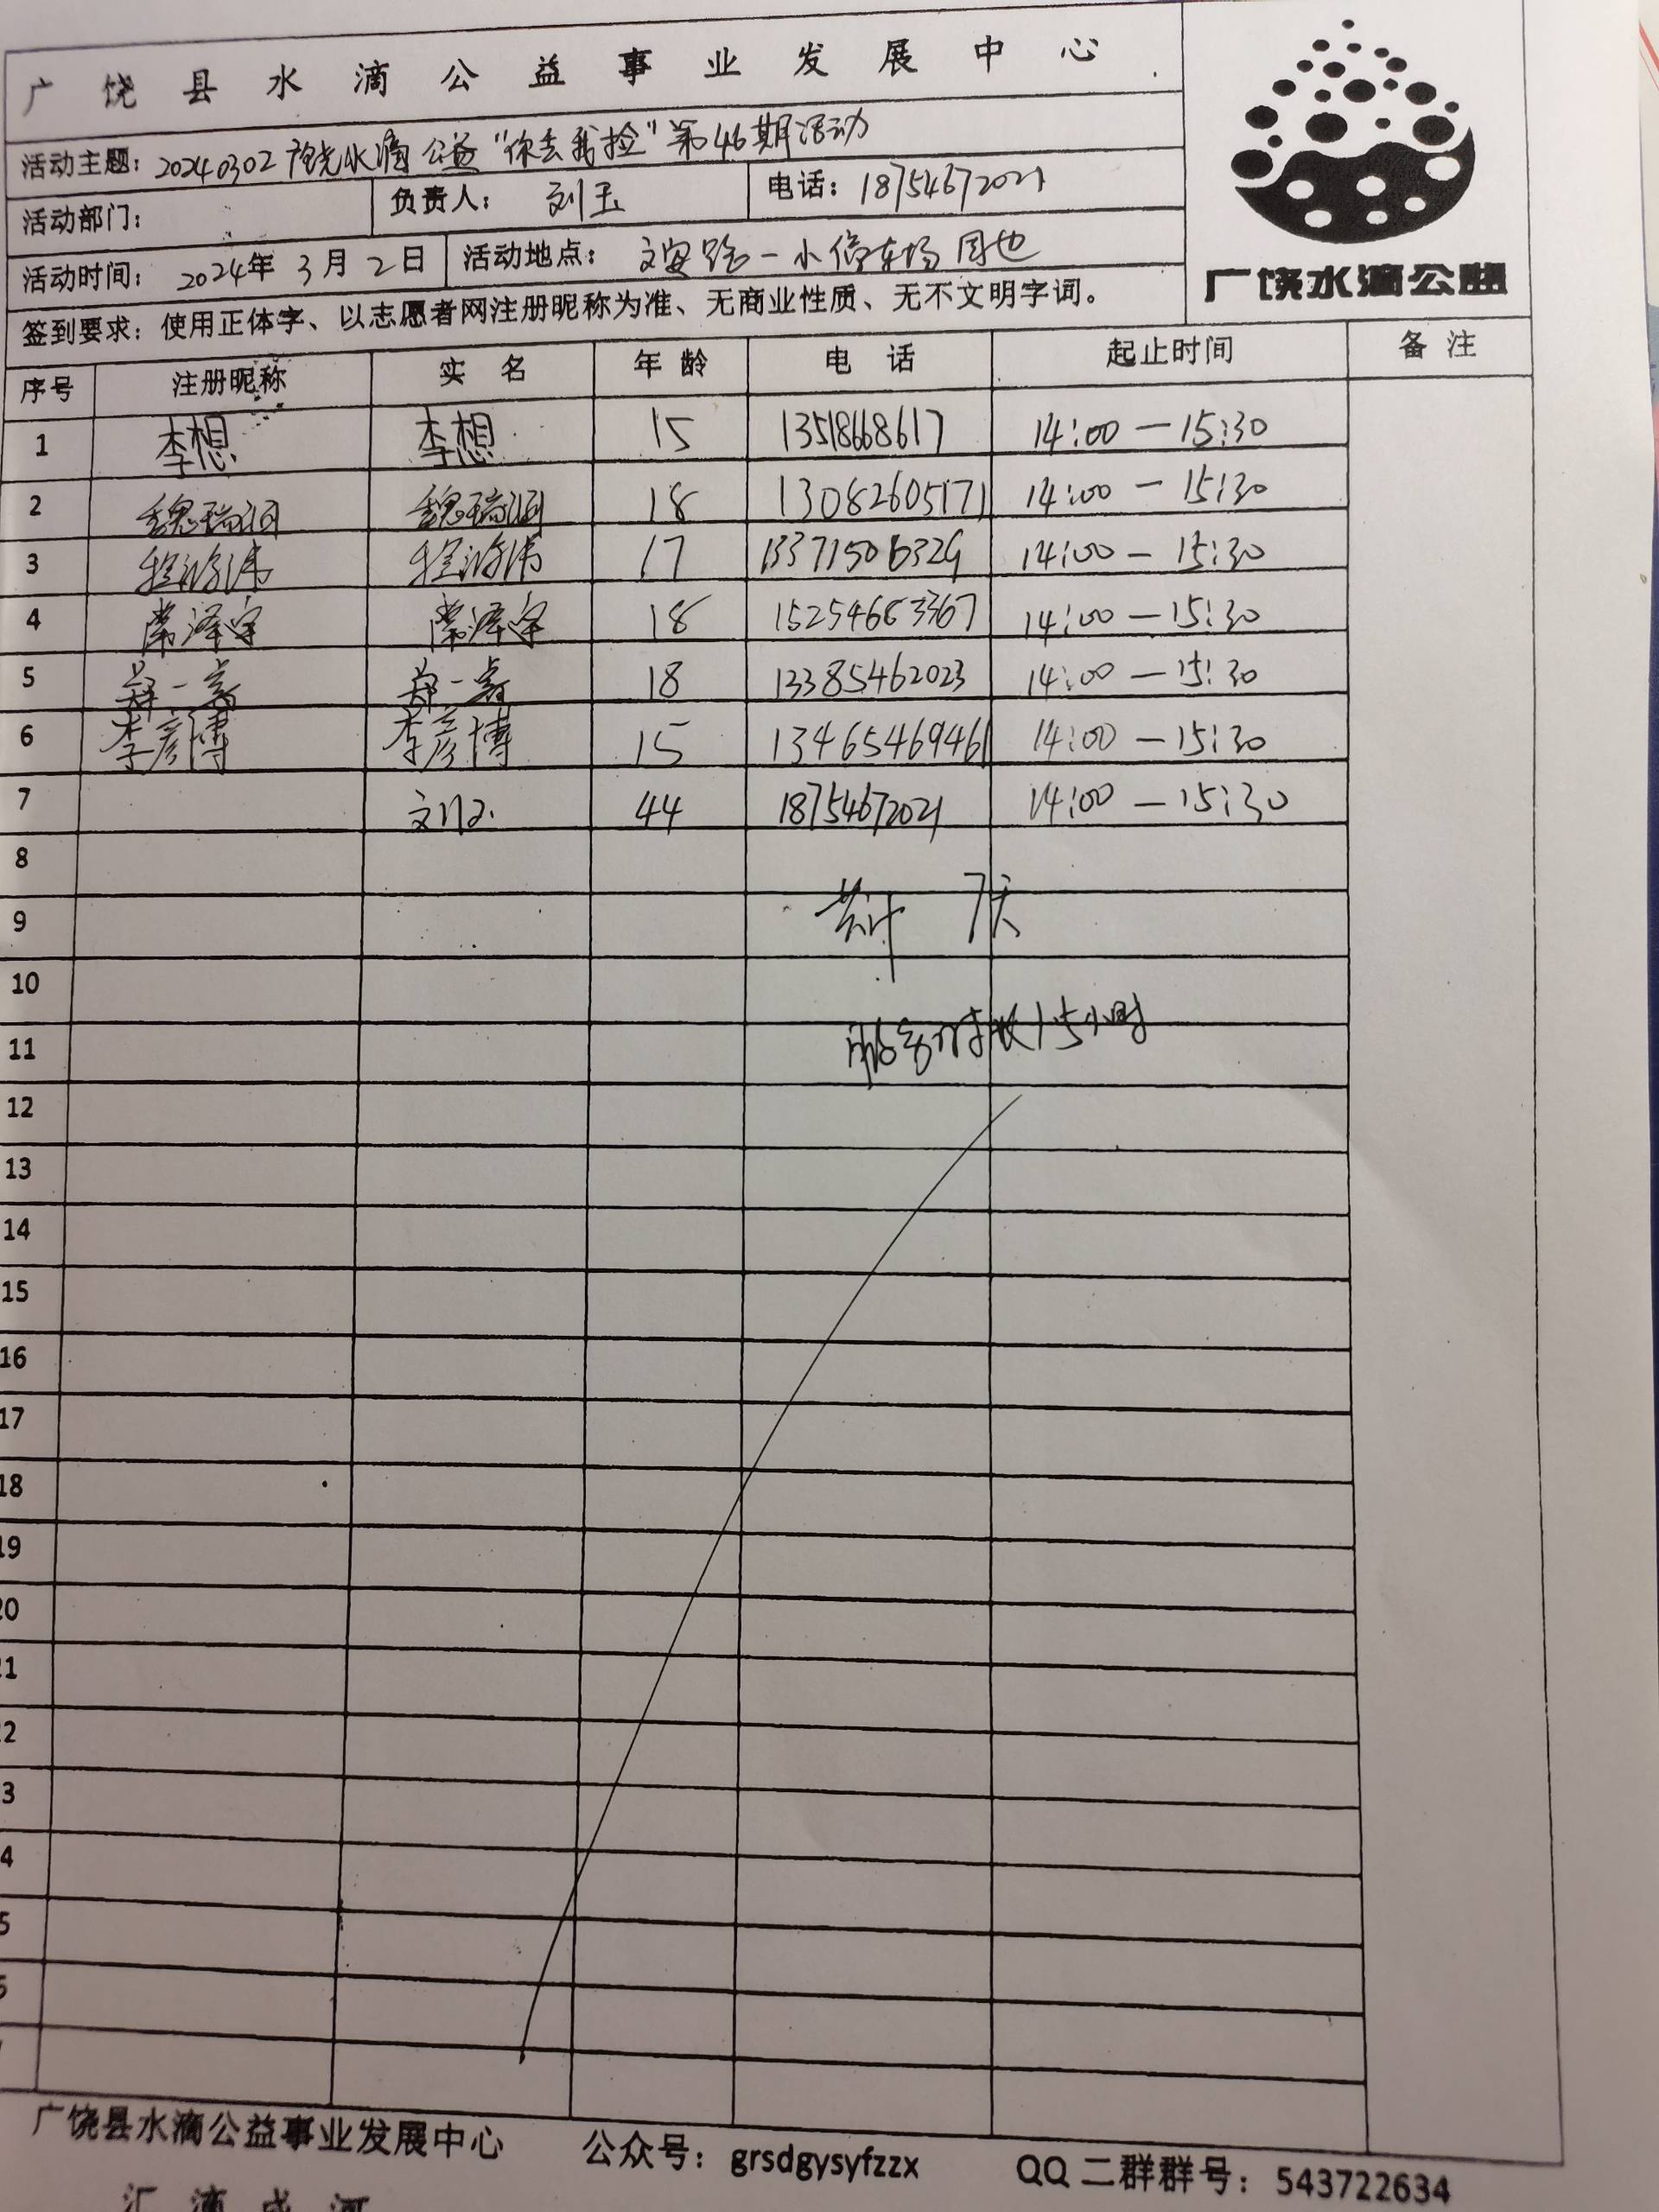 广饶县水滴公益事业发展中心
活动主题：20240302广饶水滴公益“你丢我捡”第46期活动
活动部门： 负责人：刘玉 电话：18754672021
活动时间：2024年3月2日 活动地点：文安路一小停车场周边
签到要求：使用正体字、以志愿者网注册昵称为准、无商业性质、无不文明字词。
广饶水滴公益
序号 注册昵称 实名 年龄 电话 起止时间 备注
1 李想 李想 15 13518668617 14:00—15:30
2 魏瑞涵 魏瑞涵 18 13082605171 14:00—15:30
3 17 13371506329 14:00—15:30
4 常泽宇 常泽宇 18 15254683367 14:00—15:30
5 郑一 郑一 18 13385462023 14:00—15:30
6 李彦博 李彦博 15 13465469461 14:00—15:30
7 刘玉 44 18754672021 14:00—15:30
8
9 共计 7人
10
11 服务时长1.5小时
12
13
14
15
16
17
18
19
20
21
22
23
24
25
26
广饶县水滴公益事业发展中心 公众号：grsdgysyfzzx QQ二群群号：543722634
汇滴成河